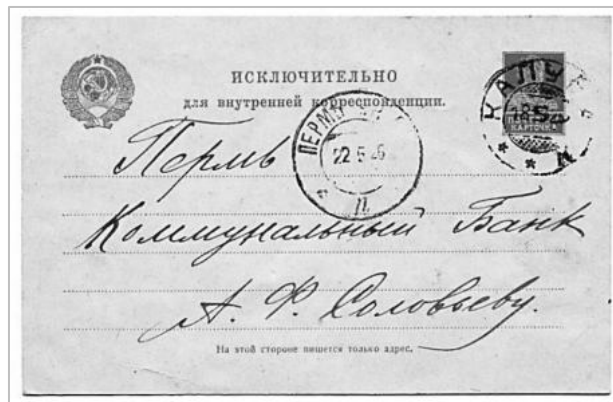 ИСКЛЮЧИТЕЛЬНО
для внутренней корреспонденции.
КАЛУГА
КАРТОЧКА
ПЕРМЬ
22 5 26
Л
Пермь
Коммунальный Банк
А. Ф. Соловьеву.
На этой стороне пишется только адрес.